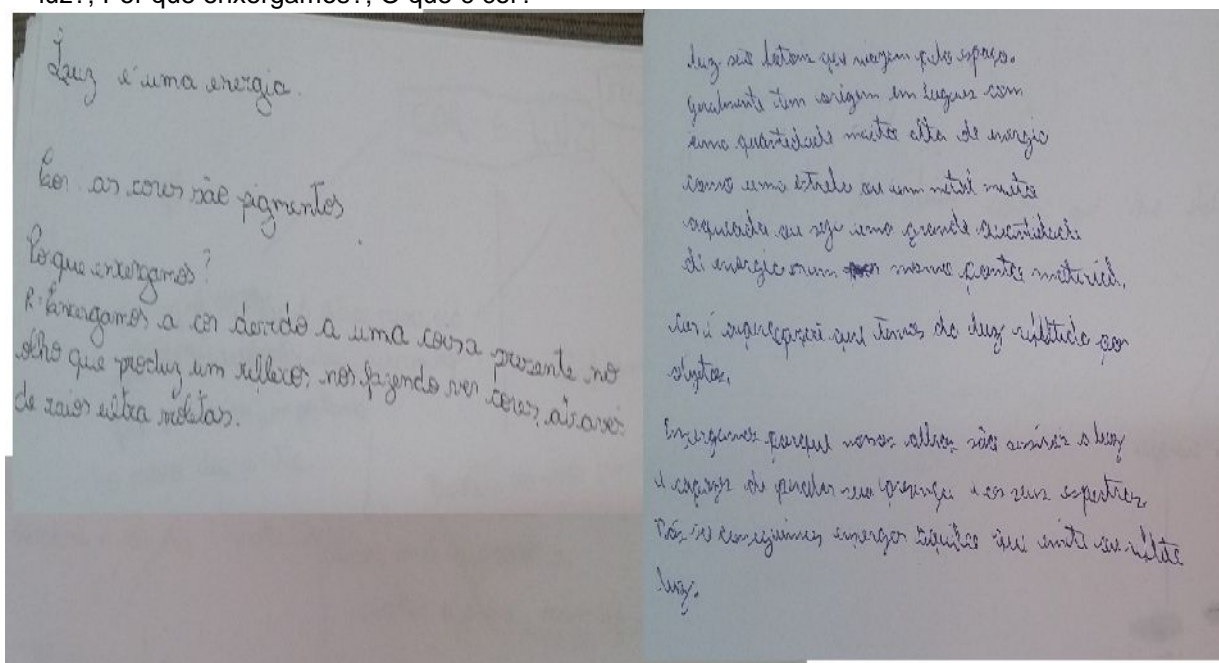 luz?, Por que enxergamos?, O que é cor?
Luz é uma energia.
Cor as cores são pigmentos
Porque enxergamos?
R: Enxergamos a cor devido a uma coisa presente no
olho que produz um reflexo, nos fazendo ver cores, através
de raios ultra violetas.
luz são fotons que viagem pelo espaço.
geralmente tem origem em lugares com
uma quantidade muito alta de energia
como uma estrela ou um metal muito
aquecido ou seja uma grande quantidade
de energia num mesmo ponto material.
Cor é a percepção que temos da luz refletida por
objetos.
Enxergamos porque nossos olhos são a luz
e capazes de perceber sua presença e os seus espectros.
Nós só conseguimos enxergar aquilo que emite ou reflete
luz.